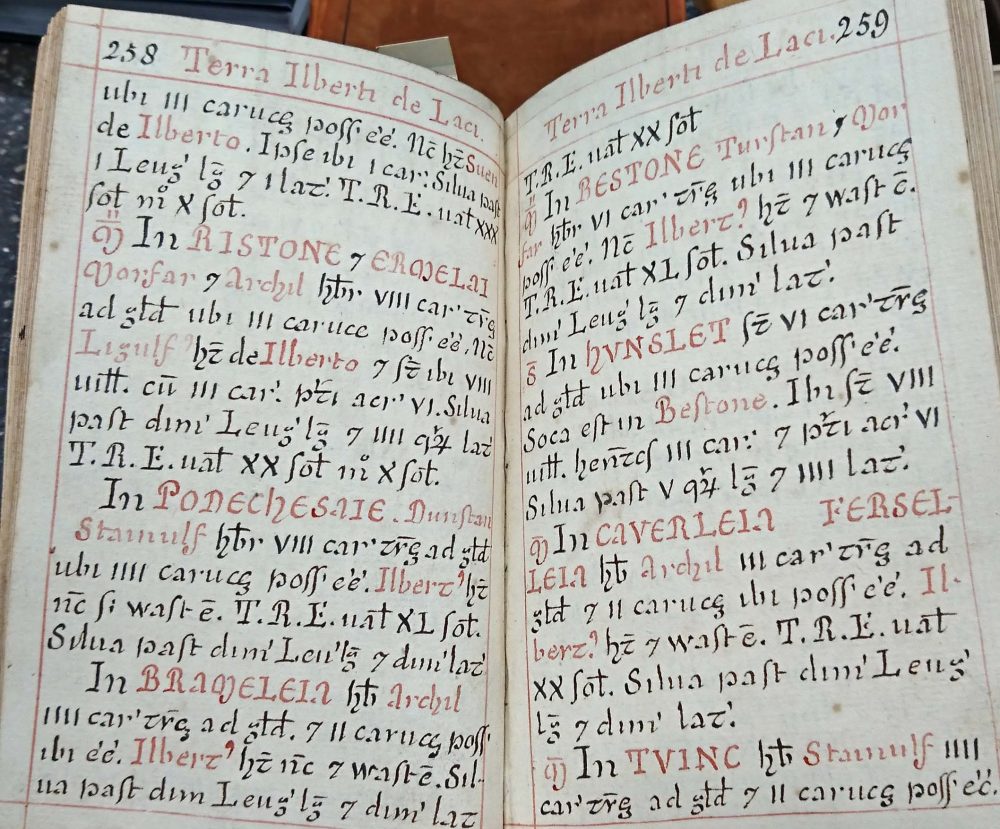 258 Terra Ilberti de Laci.
ubi III carucę poſſ. ēē. Nc̄ ht̄ Suen
de Ilberto. Ipſe ibi I car'. Silua paſt
I Leug' lḡ ⁊ I lat'. T.R.E. uał XXX
ſoł m̊ X ſoł.
M̄ In RISTONE ⁊ ERMELAI
Morfar ⁊ Archil hb̄r VIII car' tr̄ę
ad głd ubi III carucę poſſ. ēē. Nc̄
Ligulf ht̄ de Ilberto ⁊ ſt̄ ibi VIII
uiłł. cū III car'. pti acr' VI. Silua
paſt dim' Leug' lḡ ⁊ IIII qr̄ƺ lat'
T.R.E. uał XX ſoł m̊ X ſoł.
In PODECHESAIE. Dunstan
Stainulf hb̄r VIII car' tr̄ę ad głd
ubi IIII carucę poſſ. ēē. Ilbert' ht̄
nc̄ ſi waſt ē. T.R.E. uał XL ſoł.
Silua paſt dim' Leu' lḡ ⁊ dim' lat'
In BRAMELEIA hb̄ Archil
IIII car' tr̄ę ad głd. ⁊ II carucę poſſ
ibi ēē. Ilbert' ht̄ nc̄ ⁊ waſt ē. Sil-
ua paſt dim Leug' lḡ ⁊ dim' lat
Terra Ilberti de Laci. 259
T.R.E. uał XX ſoł
M̄ In BESTONE Turstan ⁊ Mor
far hb̄r VI car' tr̄ę ubi III carucę
poſſ. ēē. Nc̄ Ilbert' ht̄ ⁊ waſt ē.
T.R.E. uał XL ſoł. Silua paſt
dim' Leug' lḡ ⁊ dim' lat'.
S̄ In HVNSLET ſt̄ VI car' tr̄ę
ad głd ubi III carucę poſſ. ēē.
Soca eſt in Beſtone. Ibi ſt̄ VIII
uiłł. hent̄eſ III car'. ⁊ pti acr' VI
Silua paſt V qr̄ƺ lḡ ⁊ IIII lat'.
M̄ In CAVERLEIA FERSEL-
LEIA hb̄ Archil III car' tr̄ę ad
głd ⁊ II carucę ibi poſſ. ēē. Il-
bert' ht̄ ⁊ waſt ē. T.R.E. uał
XX ſoł. Silua paſt dim' Leug'
lḡ ⁊ dim' lat'.
M̄ In TVINC hb̄ Stainulf IIII
car' tr̄ę ad głd ⁊ II carucę poſſ. ēē.